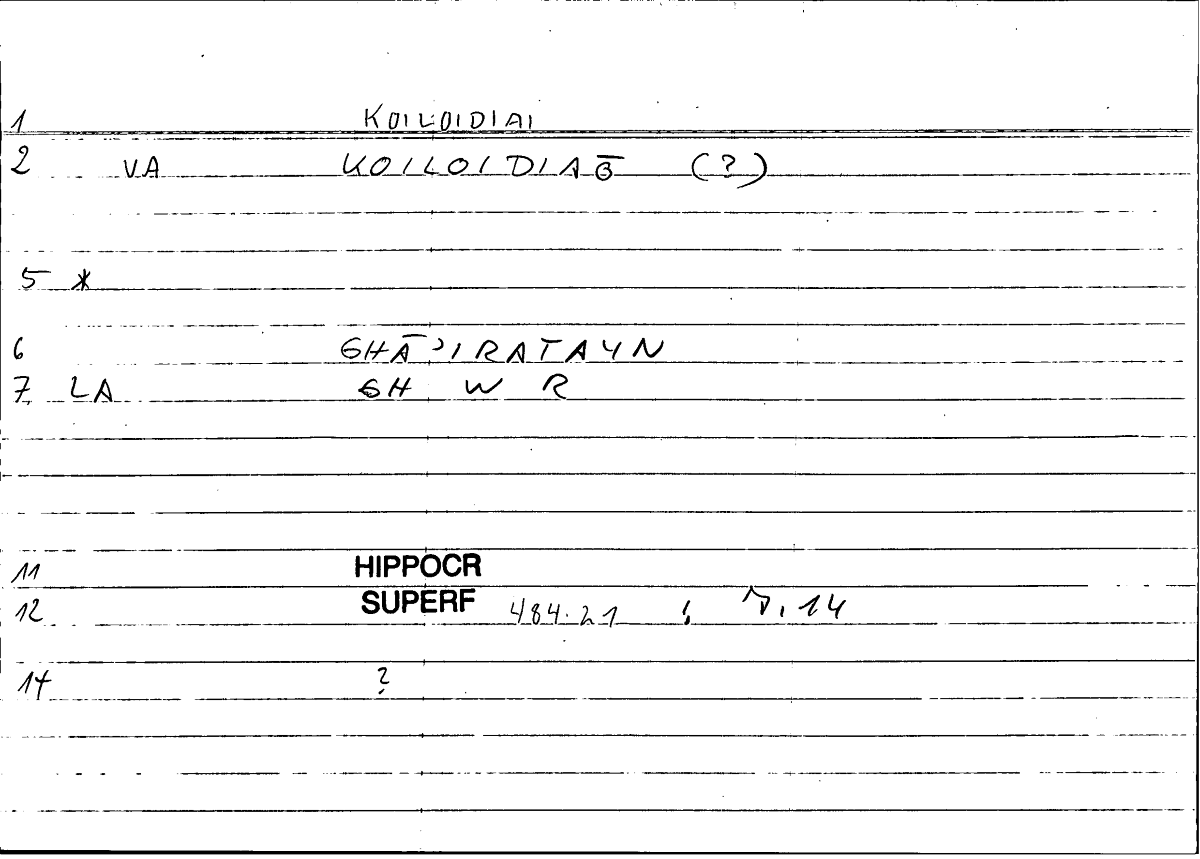 1 KOILOIDIAI
2 VA KOILOIDIA (?)
5 *
6 GHĀʾIRATAYN
7 LA GH W R
11 HIPPOCR
12 SUPERF 484.21 ; 14
14 ?